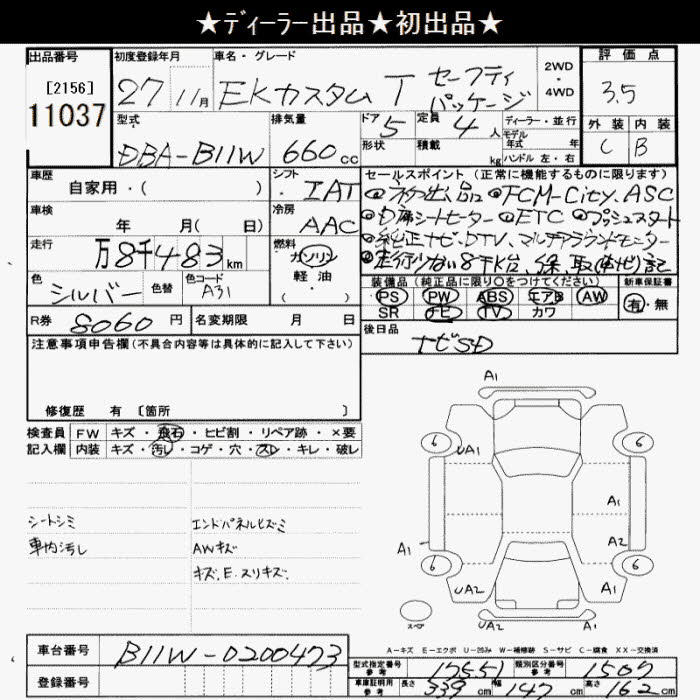 ★ディーラー出品★初出品★
出品番号
[2156]
11037
初度登録年月
27 11月
車名・グレード
EKカスタム T セーフティ
パッケージ
2WD
・
4WD
評価点
3.5
外装 内装
C B
型式
DBA-B11W
排気量
660cc
ドア 5
形状
定員 4人
積載 kg
ディーラー・並行
モデル
年式 年
ハンドル 左・右
車歴
自家用・( )
シフト
IAT
セールスポイント(正常に機能するものに限ります)
FCM-City. ASC
シートヒーター ETC プッシュスタート
純正ナビ. DTV、マルチアラウンドモニター
走行少ない8千K台、保、取(ナビ)記
車検
年 月( 日)
冷房
AAC
走行
万8千483km
燃料
ガソリン
軽油
・
( )
色
シルバー
色替
色コード
A31
装備品(純正品に限り○をつけてください)
PS PW ABS エアB AW
SR ナビ TV カワ
新車保証書
有・無
R券 8060円
名変期限 月 日
後日品
ナビSD
注意事項申告欄(不具合内容等は具体的に記入して下さい)
修復歴 有 [箇所 ]
検査員 FW キズ・飛石・ヒビ割・リペア跡・×要
記入欄 内装 キズ・汚れ・コゲ・穴・スレ・キレ・破レ
シートシミ
車内汚レ
エンドパネルヒズミ
AWキズ
キズ.E.スリキズ.
A1
6 UA1 6
A1
A1 A2
6 6
UA2 A1
UA2 A1
スペア
A-キズ E-エクボ U-凹み W-補修跡 S-サビ C-腐食 XX-交換済
車台番号
B11W-0200473
登録番号
型式指定番号
参考
17551
類別区分番号
参考
1507
車庫証明用
参考
長さ 339cm 幅 147cm 高さ 162cm